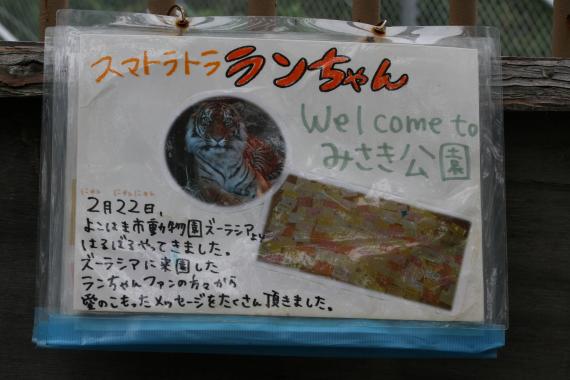 スマトラトラ ランちゃん
Welcome to
みさき公園
にゃん にゃんにゃん
2月22日、
よこはま市動物園ズーラシアより
はるばるやってきました。
ズーラシアに来園した
ランちゃんファンの方々から
愛のこもったメッセージをたくさん頂きました。